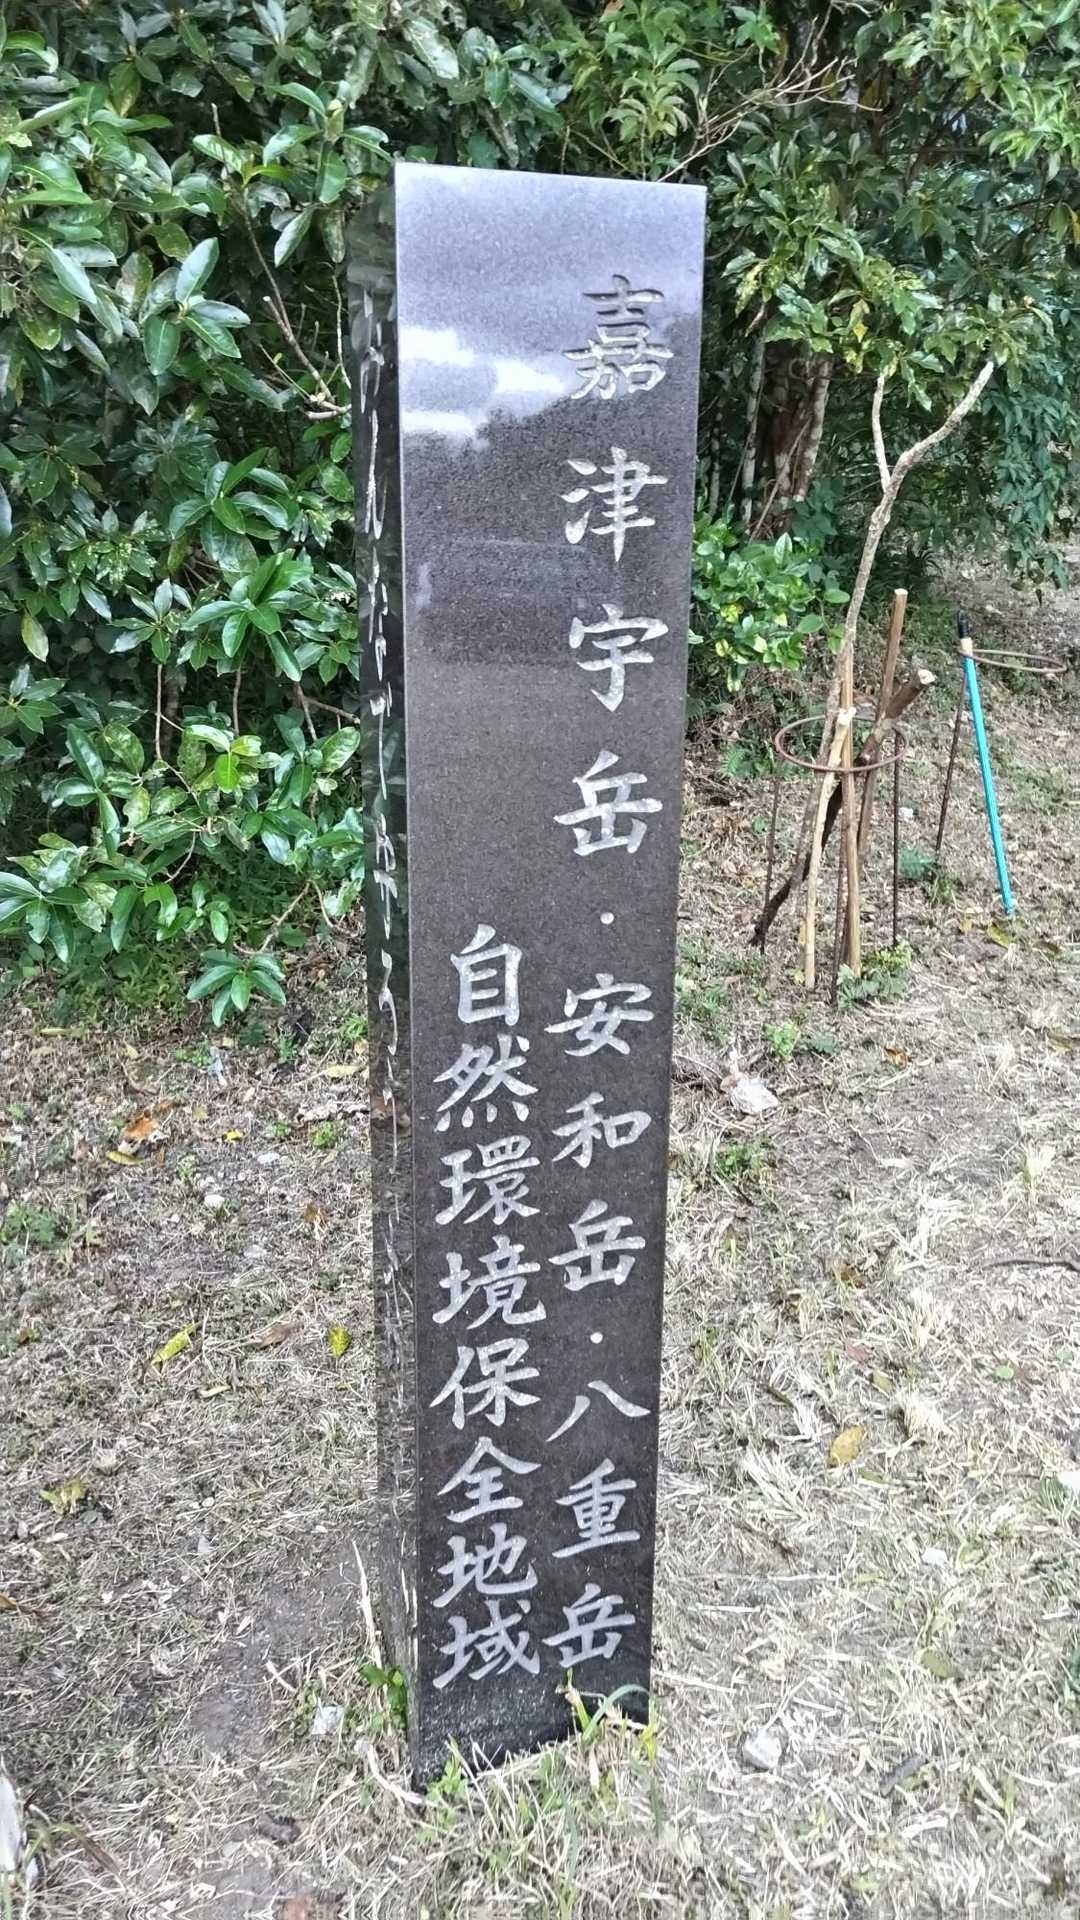 嘉津宇岳・安和岳・八重岳
自然環境保全地域